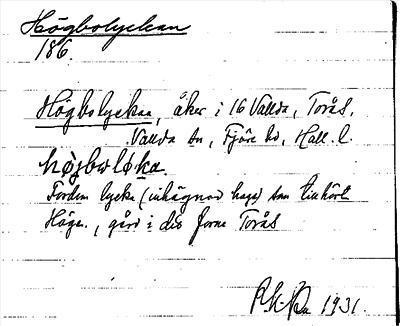 Högbolyckan
186.
Högbolyckan, åker i 16 Vallda, Torås,
Vallda sn, Fjäre hd, Hall. l.
Fordom lycka (inhägnad hage) som tillhört
Höge., gård i dess forna Torås
1931.